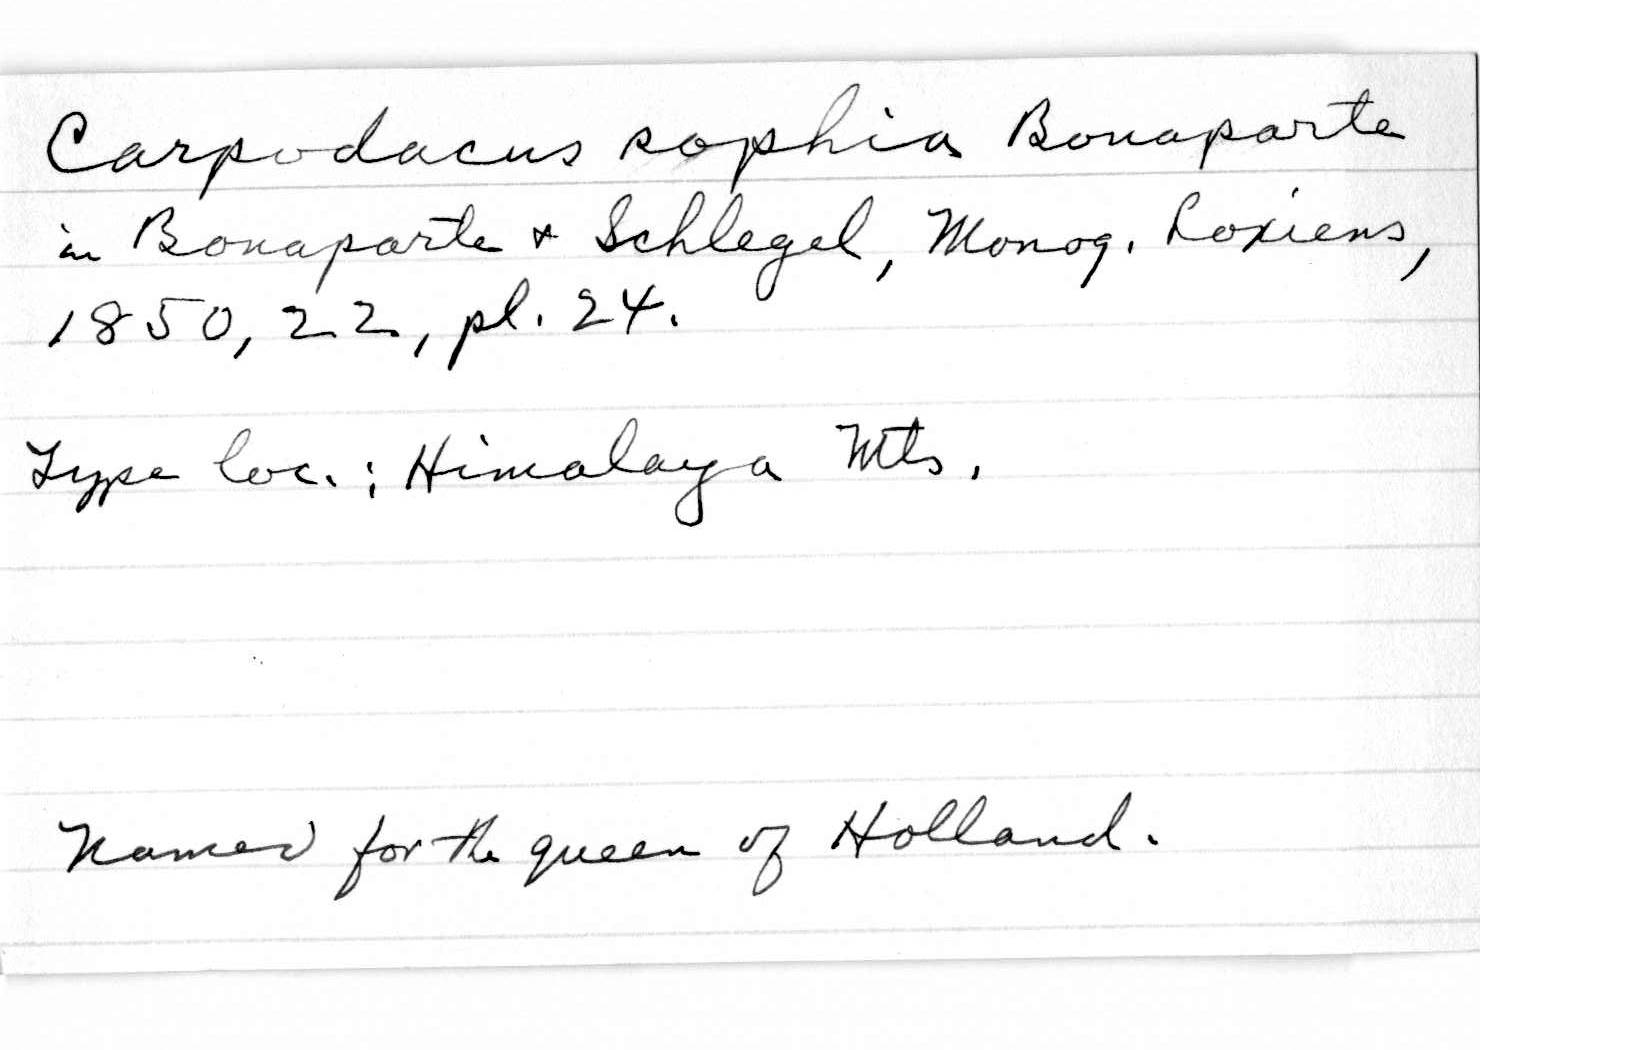 Carpodacus sophia Bonaparte
in Bonaparte & Schlegel, Monog. Loxiens,
1850, 22, pl. 24.
Type loc.: Himalaya Mts.
Named for the queen of Holland.